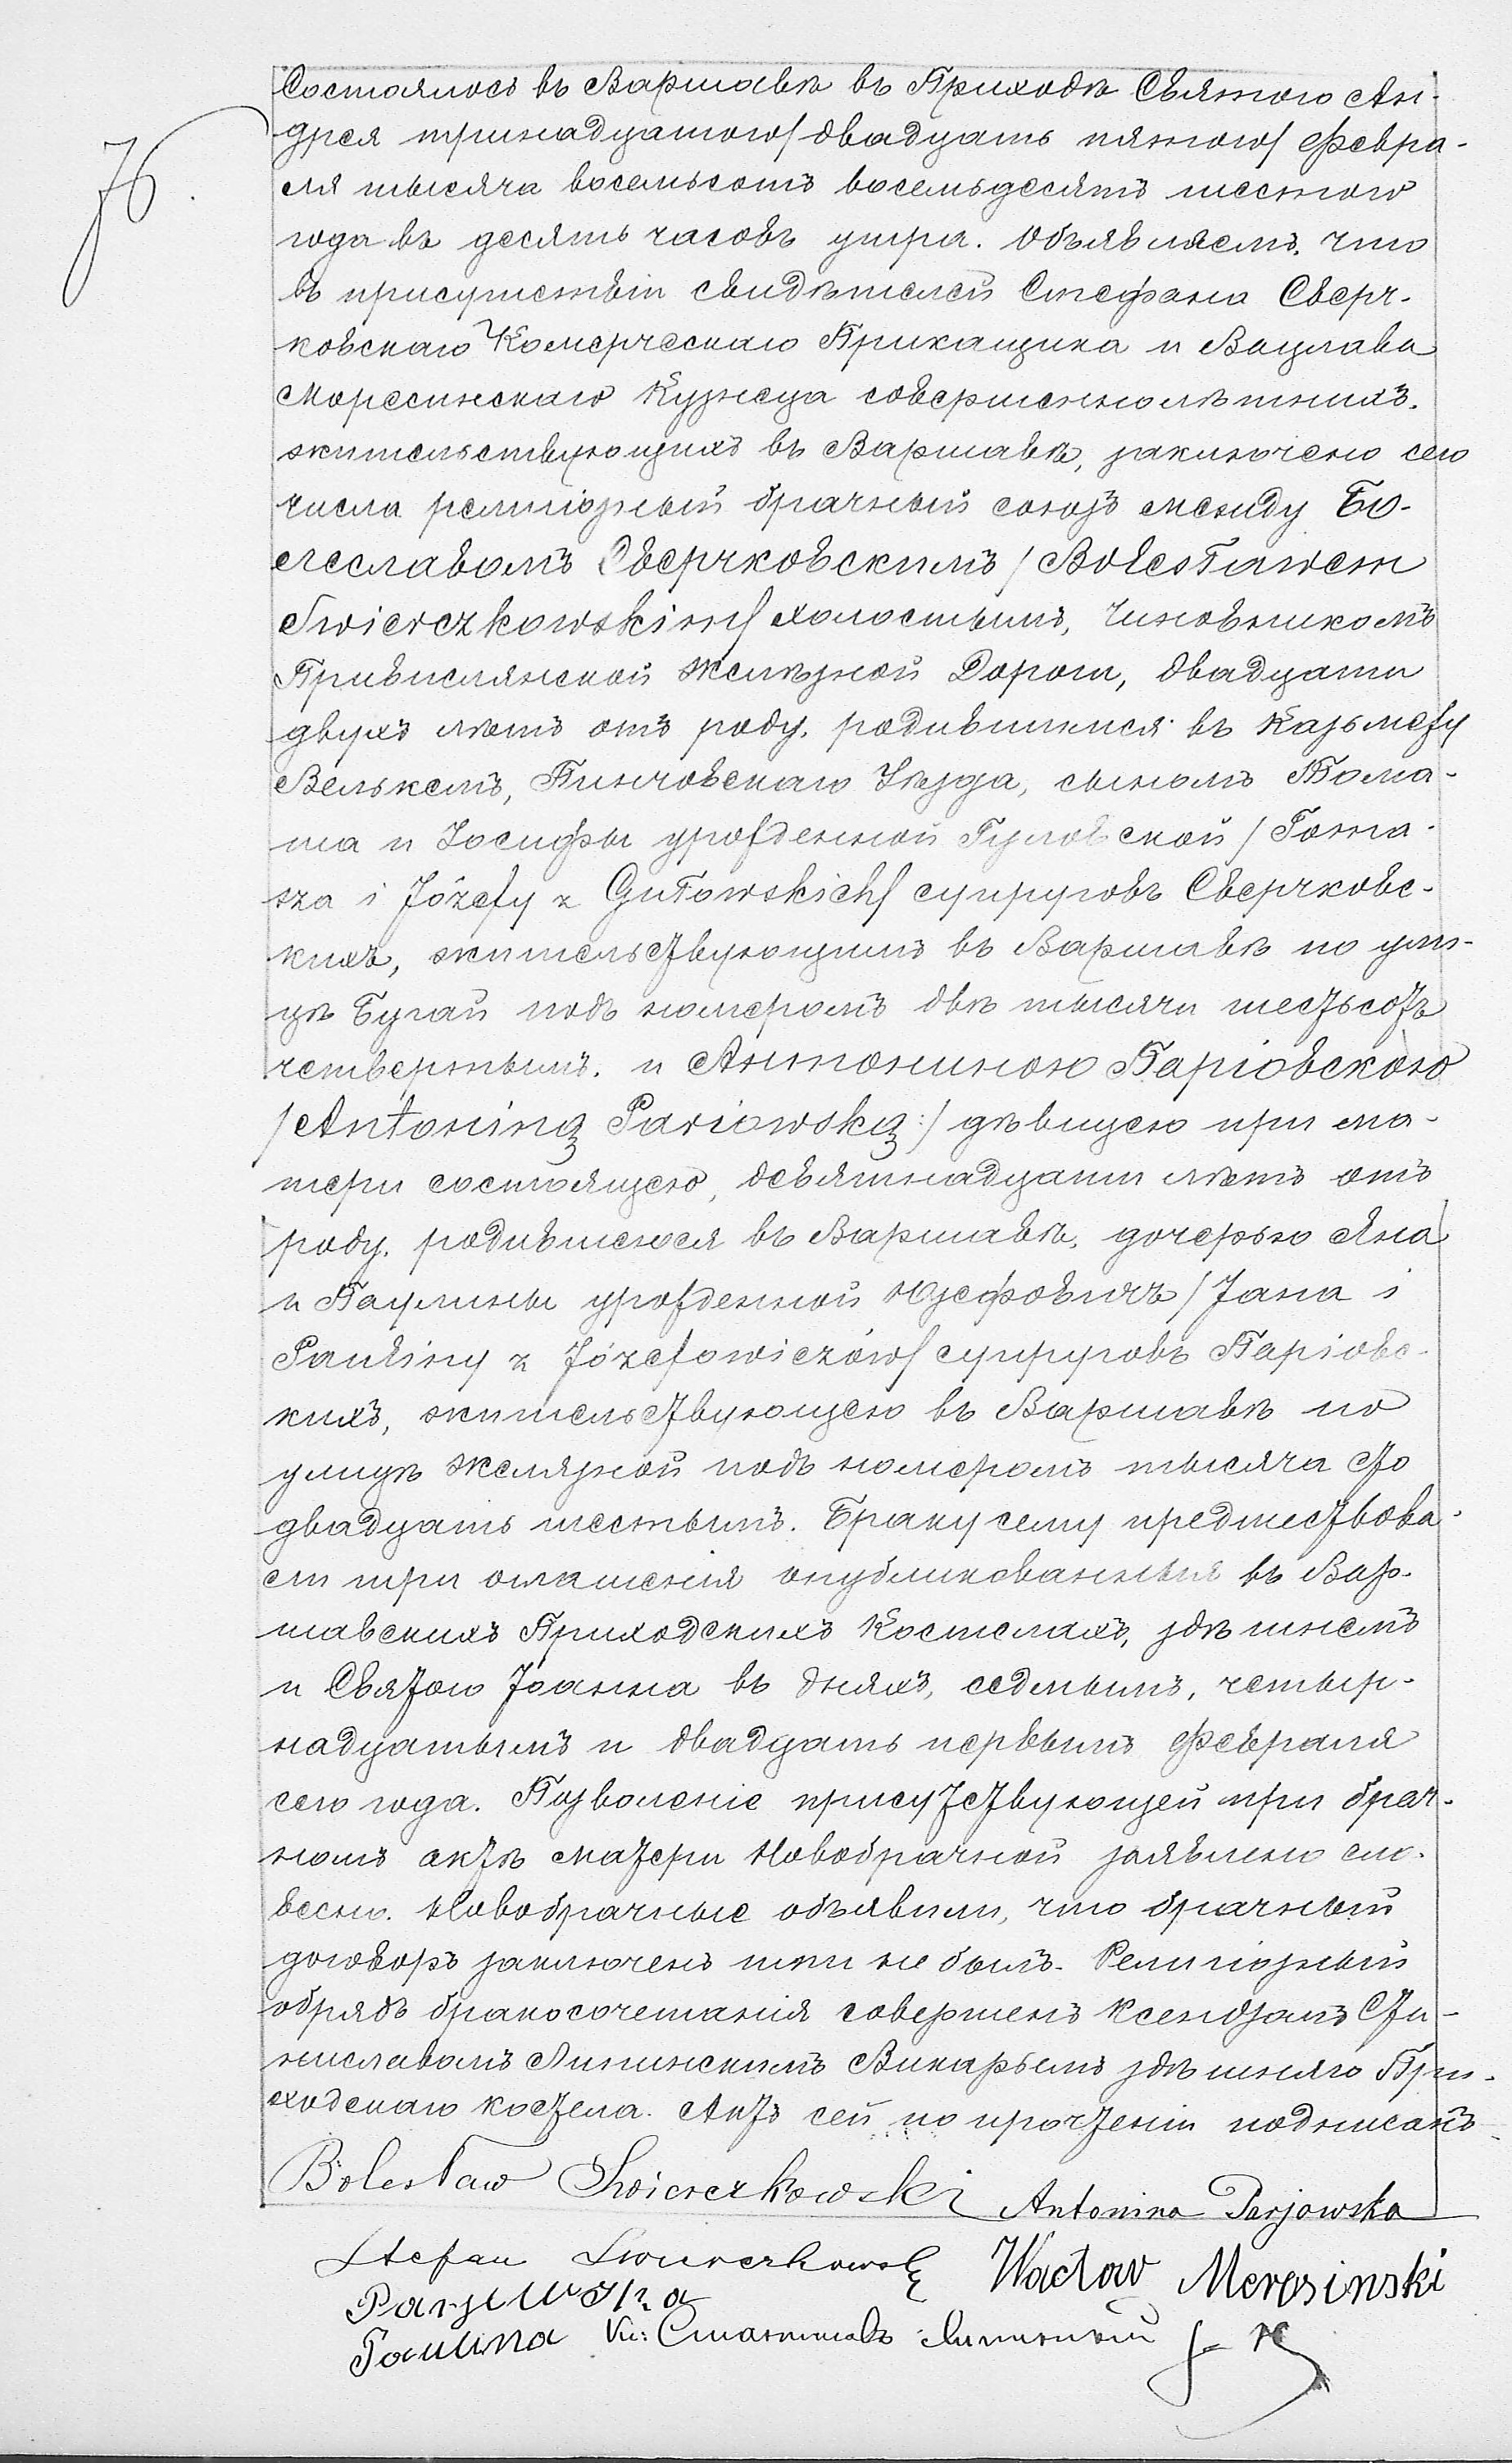 76.
Состоялось въ Варшавѣ въ Приходѣ Святого Ан-
дрея тринадцатого/двадцать пятого/ Февра-
ля тысяча восемьсотъ восемьдесятъ шестого
года въ десять часовъ утра. Объявляемъ, что
въ присутствіи свидѣтелей Стефана Сверч-
ковскаго Комерческаго Прикащика и Вацлава
Моресинскаго Кузнеца совершеннолѣтнихъ,
жительствующихъ въ Варшавѣ, заключено сего
числа религіозный брачный союзъ между Бо-
леславомъ Сверчковскимъ /Bolesławem
Swierczkowskim/ холостымъ, Чиновникомъ
Привислянской Желѣзной Дороги, двадцати
двухъ лѣтъ отъ роду, родившимся въ Казьмежу
Велькемъ, Пинчовскаго Уѣзда, сыномъ Тома-
ша и Іосифы урожденной Гутовской /Toma-
sza i Józefy z Gutowskich/ супруговъ Сверчковс-
кихъ, жительствующимъ въ Варшавѣ по ули-
цѣ Бугай подъ номеромъ двѣ тысячи шестьсотъ
четвертымъ, и Антониною Паріовскою
/Antoniną Pariowską:/ дѣвицею при ма-
тери состоящею, девятнадцати лѣтъ отъ
роду, родившеюся въ Варшавѣ, дочерью Яна
и Паулины урожденной Юзефовичъ /Jana i
Pauliny z Józefowiczów/ супруговъ Паріовс-
кихъ, жительствующею въ Варшавѣ по
улицѣ Желязной подъ номеромъ тысяча сто
двадцать шестымъ. Браку сему предшествова-
ли три оглашенія опубликованныя въ Вар-
шавскихъ Приходскихъ Костелахъ, здѣшнемъ
и Святого Іоанна въ дняхъ, седьмымъ, четыр-
надцатымъ и двадцать первымъ Февраля
сего года. Позволеніе присутствующей при брач-
номъ актѣ матери Новобрачной заявлено сло-
весно. Новобрачные объявили, что брачный
договоръ заключенъ ими не былъ. Религіозный
обрядъ бракосочетанія совершенъ Ксендзомъ Ста-
ниславомъ Липинскимъ Викарьемъ здѣшняго При-
ходскаго костела. Актъ сей по прочтеніи подписанъ
Bolesław Swierczkowski Antonina Parjowska
Stefan Swierczkowski Wacław Meresinski
Parjowska
Paulina Кс: Станиславъ Липинскій